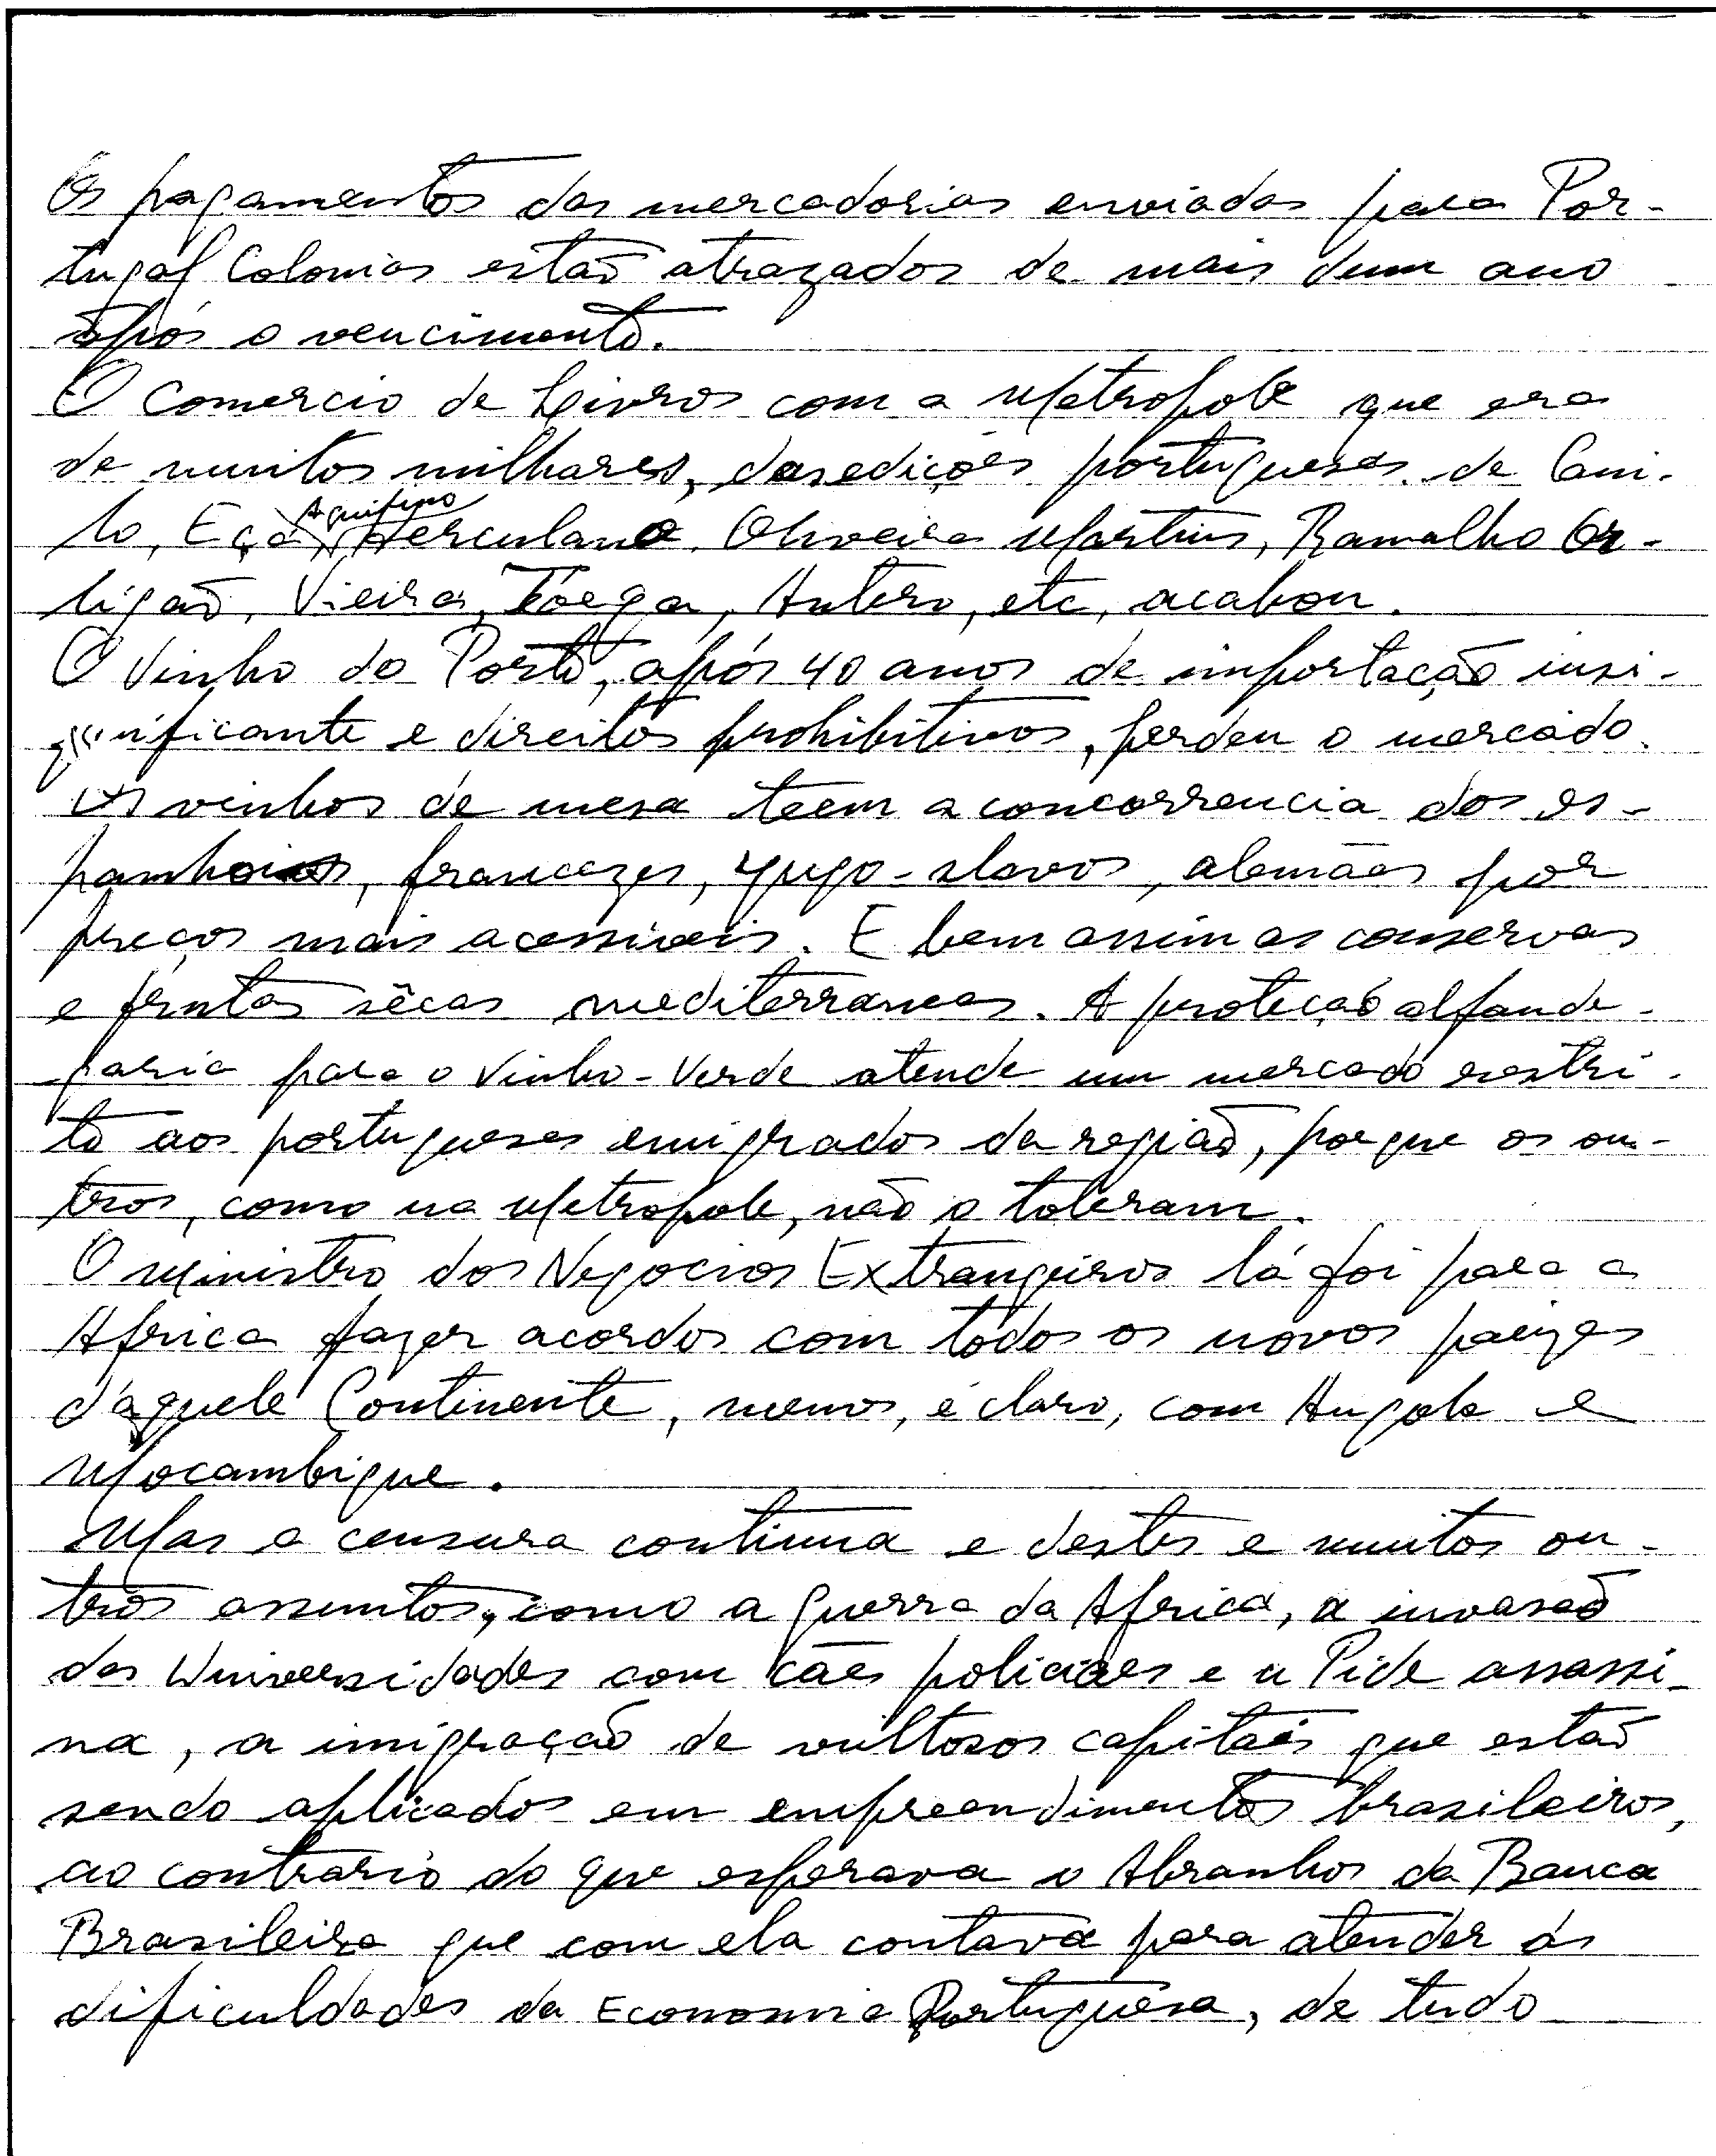 Os pagamentos das mercadorias enviadas para Por-
tugal Colonias estão atrazados de mais dum ano
após o vencimento.
O Comercio de Livros com a Metropole que era
de muitos milhares, das edições portuguesas de Cami-
lo, Eça, Aquilino Herculano, Oliveira Martins, Ramalho Or-
tigão, Vieira, Antero, etc, acabou.
O Vinho do Porto, após 40 anos de importação insi-
gnificante e direitos prohibitivos, perdeu o mercado.
Os vinhos de mesa teem a concorrencia dos es-
panhois, francezes, yugo-slavos, alemães por
preços mais acessiveis. E bem assim as conservas
e frutas sêcas mediterraneas. A proteção alfande-
garia para o Vinho-Verde atende um mercado restri-
to aos portugueses emigrados da região, porque os ou-
tros, como na Metropole, não o toleram.
O Ministro dos Negocios Extrangeiros lá foi para a
Africa fazer acordos com todos os novos paizes
d'aquele Continente, menos, é claro, com Angola e
Mocambique.
Mas a censura continua e destes e muitos ou-
tros assuntos, como a guerra da Africa, a invasão
das Universidades com cães policiaes e a Pide assassi-
na, a imigração de vultosos capitães que estão
sendo aplicados em empreendimentos brasileiros,
ao contrario do que esperava o Abranhos da Banca
Brasileira que com ela contava para atender ás
dificuldades da Economia Portuguêsa, de tudo